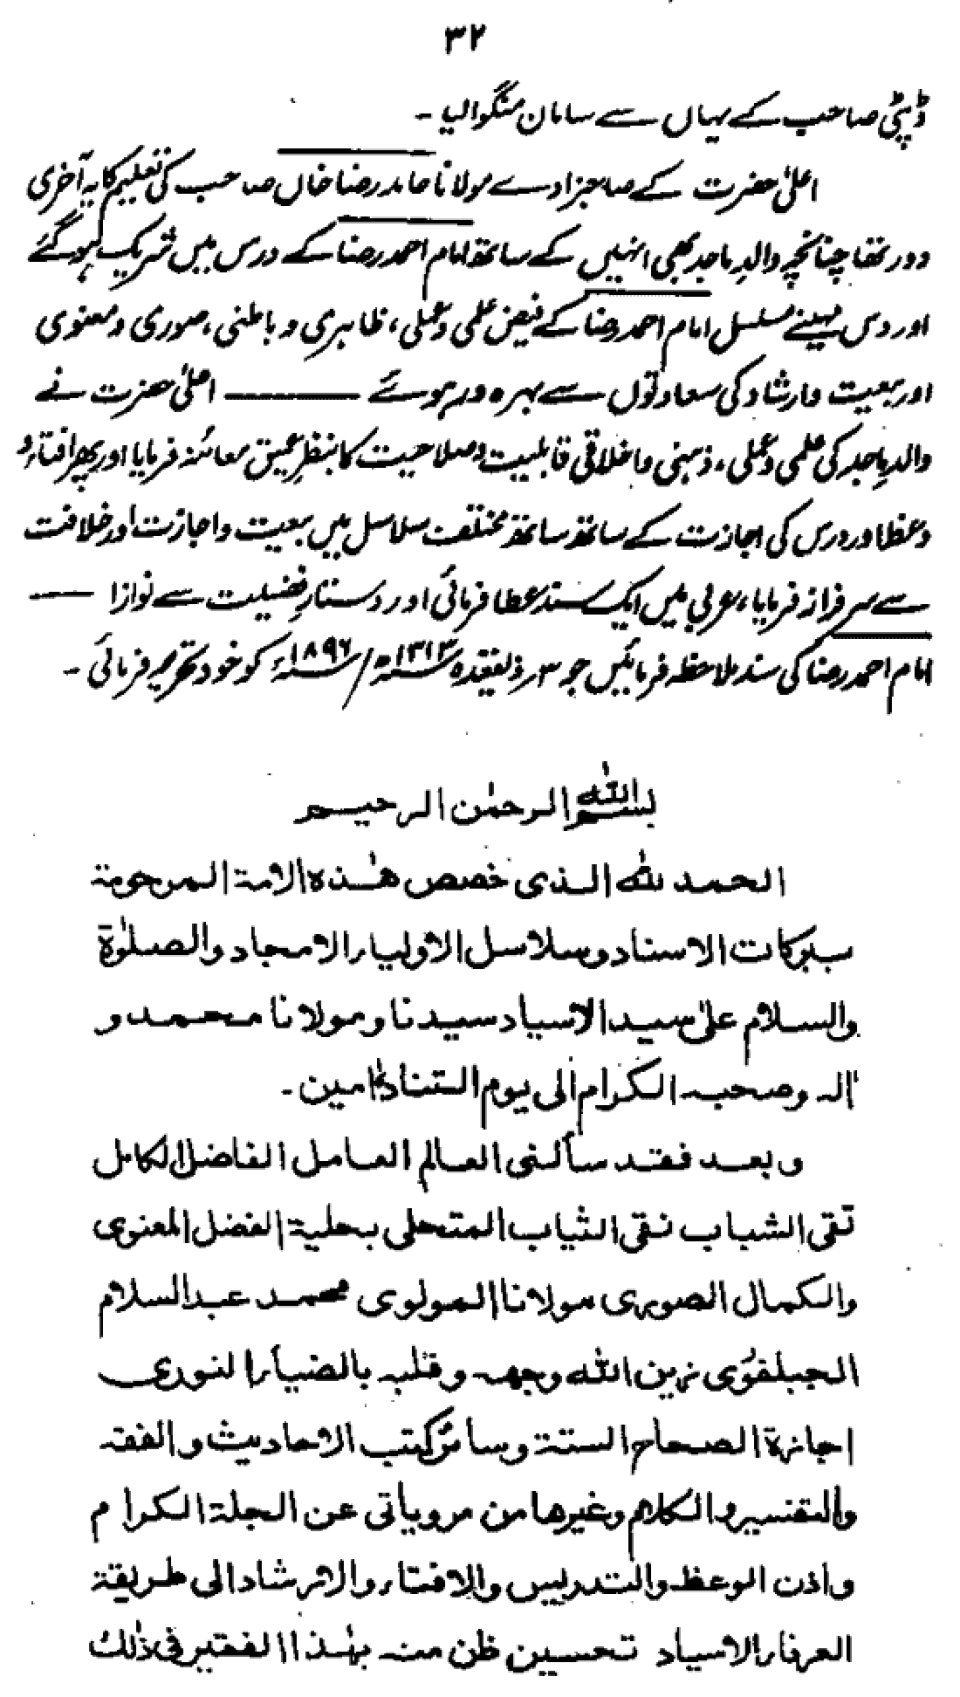 ۳۲
ڈپٹی صاحب کے یہاں سے سامان منگوالیا۔
اعلیٰ حضرت کے صاحبزادے مولانا حامد رضا خاں صاحب کی تعلیم کا یہ آخری
دور تھا چنانچہ والدِ ماجد بھی انہیں کے ساتھ امام احمد رضا کے درس میں شریک ہو گئے
اور دس مہینے مسلسل امام احمد رضا کے فیض علمی و عملی، ظاہری و باطنی، صوری و معنوی
اور بیعت و ارشاد کی سعادتوں سے بہرہ ور ہوئے ——— اعلیٰ حضرت نے
والدِ ماجد کی علمی و عملی، ذہنی و اخلاقی قابلیت و صلاحیت کا بنظرِ عمیق معائنہ فرمایا اور پھر افتاء و
وعظ اور درس کی اجازت کے ساتھ ساتھ مختلف سلاسل میں بیعت و اجازت اور خلافت
سے سرفراز فرمایا، عربی میں ایک سند عطا فرمائی اور دستارِ فضیلت سے نوازا ——
امام احمد رضا کی سند ملاحظہ فرمائیں جو ۳؍ ذیقعدہ ۱۳۱۳ھ/ ۱۸۹۶ء کو خود تحریر فرمائی۔
بسم اللہ الرحمٰن الرحیم
الحمد للہ الذی خصص ھٰذہ الامۃ المرحومۃ
ببرکات الاسناد وسلاسل الاولیاء الامجاد والصلوٰۃ
والسلام علیٰ سید الاسیاد سیدنا و مولانا محمد و
اٰلہ وصحبہ الکرام الی یوم التناد اٰمین۔
وبعد فقد سألنی العالم العامل الفاضل الکامل
تقی الشباب نقی الثیاب المتحلی بحلیۃ الفضل المعنوی
والکمال الصوری مولانا المولوی محمد عبدالسلام
الجبلفوری زین اللہ وجھہ وقلبہ بالضیاء النوری
اجازۃ الصحاح الستۃ وسائر کتب الاحادیث والفقہ
والتفسیر والکلام وغیرھا من مرویاتی عن الجلۃ الکرام
واذن الوعظ والتدریس والافتاء والارشاد الی طریقۃ
العرفاء الاسیاد تحسین ظن منہ بھٰذا الفقیر فی ذٰلک